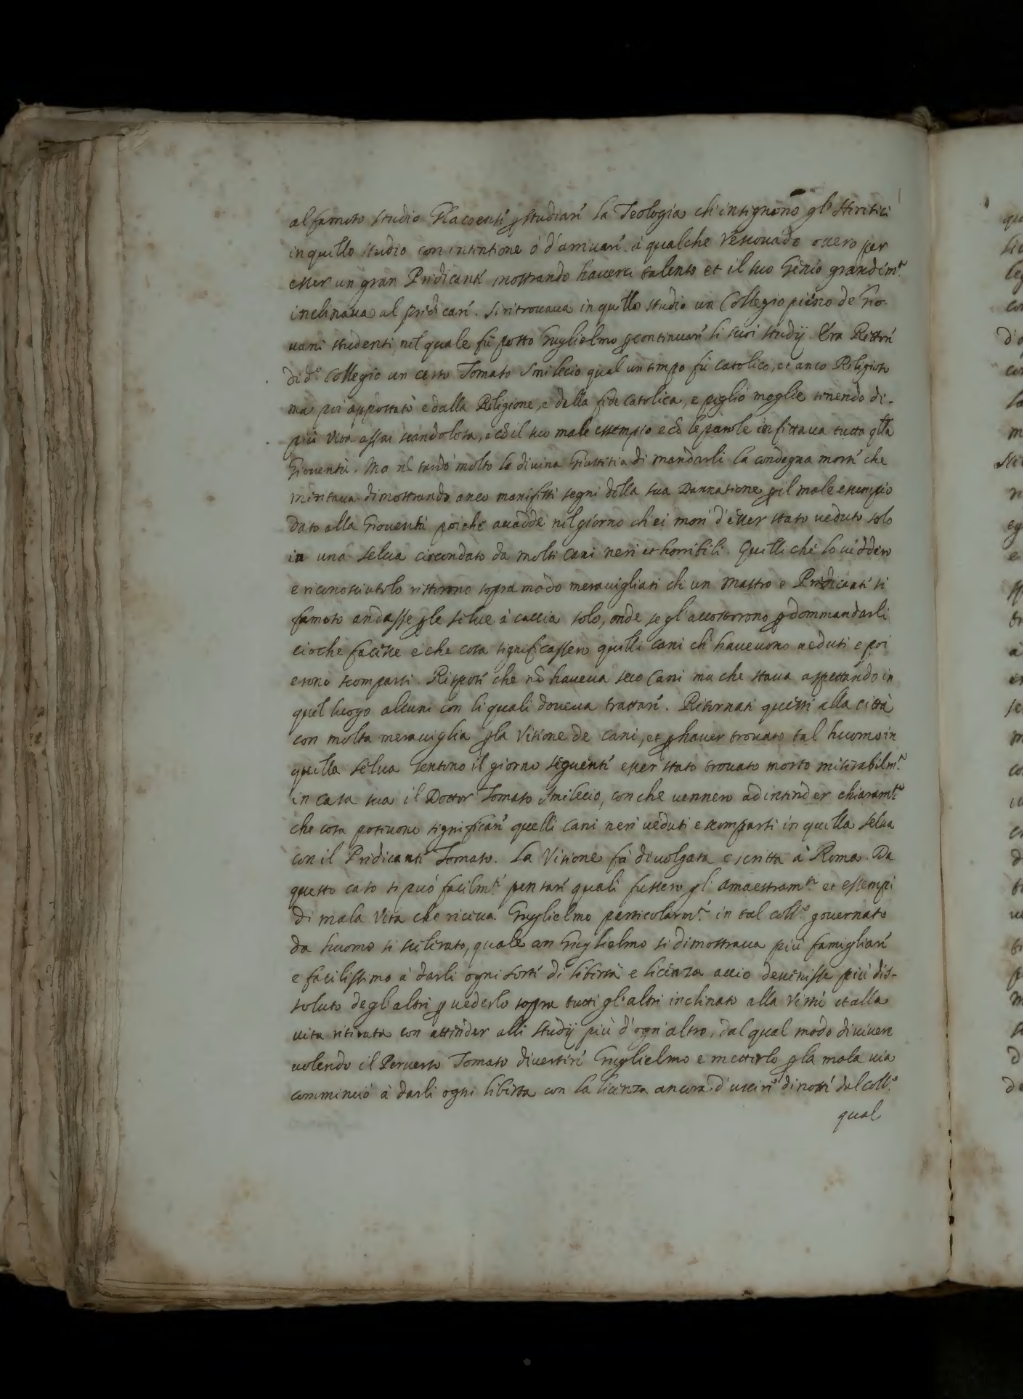 al famoso studio Placenti p studiar la Teologia ch'insignono gl'Heretici
in quello studio con intentione ò d'arrivar à qualche Vescovado overo per
esser un gran Predicante mostrando haverci talento et il suo Genio grandem.te
inclinava al predicar. Si ritrovava in quello studio un Collegio pieno de Gio-
vani studenti nel quale fù posto Guglielmo p continuar li suoi studij. Era Rettor
di d.o Collegio un certo Tomaso Smilecio qual un tempo fù Catolico, et anco Religioso
ma poi appostatò e dalla Religione, e della fede Catolica, e pigliò moglie tenendo di
più Vita assai scandolosa, e cõ el suo male essempio e cõ le parole infettava tutta q.lla
Gioventù. Ma nõ tardò molto la divina Giustitia di mandarli la condegna morte che
meritava dimostrando anco manifesti segni della sua Dannatione p il male esempio
dato alla Gioventù poiche accadde nel giorno ch'ei morì d'esser stato veduto solo
in una selva circondato da molti cani neri et horribili. Quelli che lo viddero
e riconosciutolo restorono sopra modo meravigliati ch'un Mastro e Predicante si
famoso andasse p le selve à caccia solo, onde se gl'accostorrono p dommandarli
cioche facesse e che cosa significassero quelli cani ch'havevono veduti e poi
erono scomparsi. Rispose che nõ haveva seco Cani ma che stava aspettando in
quel luogo alcuni con li quali doveva trattar. Ritornati questi alla città
con molta meraviglia p la Visione de cani, et p haver trovato tal huomo in
quella selva sentono il giorno seguente esser stato trovato morto miserabilm.te
in casa sua il Dottor Tomaso Smilecio, con che vennero ad intender chiaram.te
che cosa potevono significar quelli cani neri veduti e scomparsi in quella selva
con il Predicante Tomaso. La Visione fù divolgata e scritta à Roma. Da
questo caso si può facilm.te pensar quali fussero gl'amaestram.ti et essempi
di mala Vita che riceva Guglielmo particolarm.te in tal coll.o governato
da huomo si scelerato, quale con Guglielmo si dimostrava più famigliar
e facilissimo à darli ogni sorte di libertà e licenza accio devenisse più dis-
soluto degl'altri p vederlo sopra tutti gl'altri inclinato alla Virtù et alla
vita ritirata con attender alli studij più d'ogni altro, dal qual modo di viver
volendo il Perverso Tomaso divertire Guglielmo e metterlo p la mala via
comminciò à darli ogni libertà con la licenza ancora d'uscire di notte del coll.o
qual